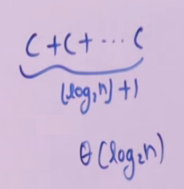 C + C + ... C
(log₂n) + 1
θ (log₂n)